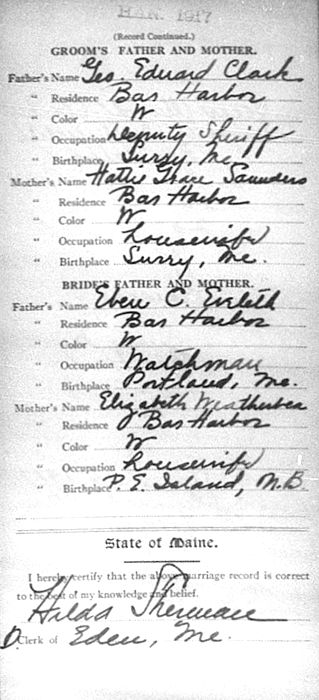 JAN. 1917
(Record Continued.)
GROOM'S FATHER AND MOTHER.
Father's Name Geo. Edward Clark
" Residence Bar Harbor
" Color W
" Occupation Deputy Sheriff
" Birthplace Surry, Me.
Mother's Name Hattie Grace Saunders
" Residence Bar Harbor
" Color W
" Occupation Housewife
" Birthplace Surry, Me.
BRIDE'S FATHER AND MOTHER.
Father's Name Eben C. Eveleth
" Residence Bar Harbor
" Color W
" Occupation Watchman
" Birthplace Portland, Me.
Mother's Name Elizabeth Weatherbea
" Residence Bar Harbor
" Color W
" Occupation Housewife
" Birthplace P. E. Island, N.B.
State of Maine.
I hereby certify that the above marriage record is correct
to the best of my knowledge and belief.
Hilda Sherman
D. Clerk of Eden, Me.